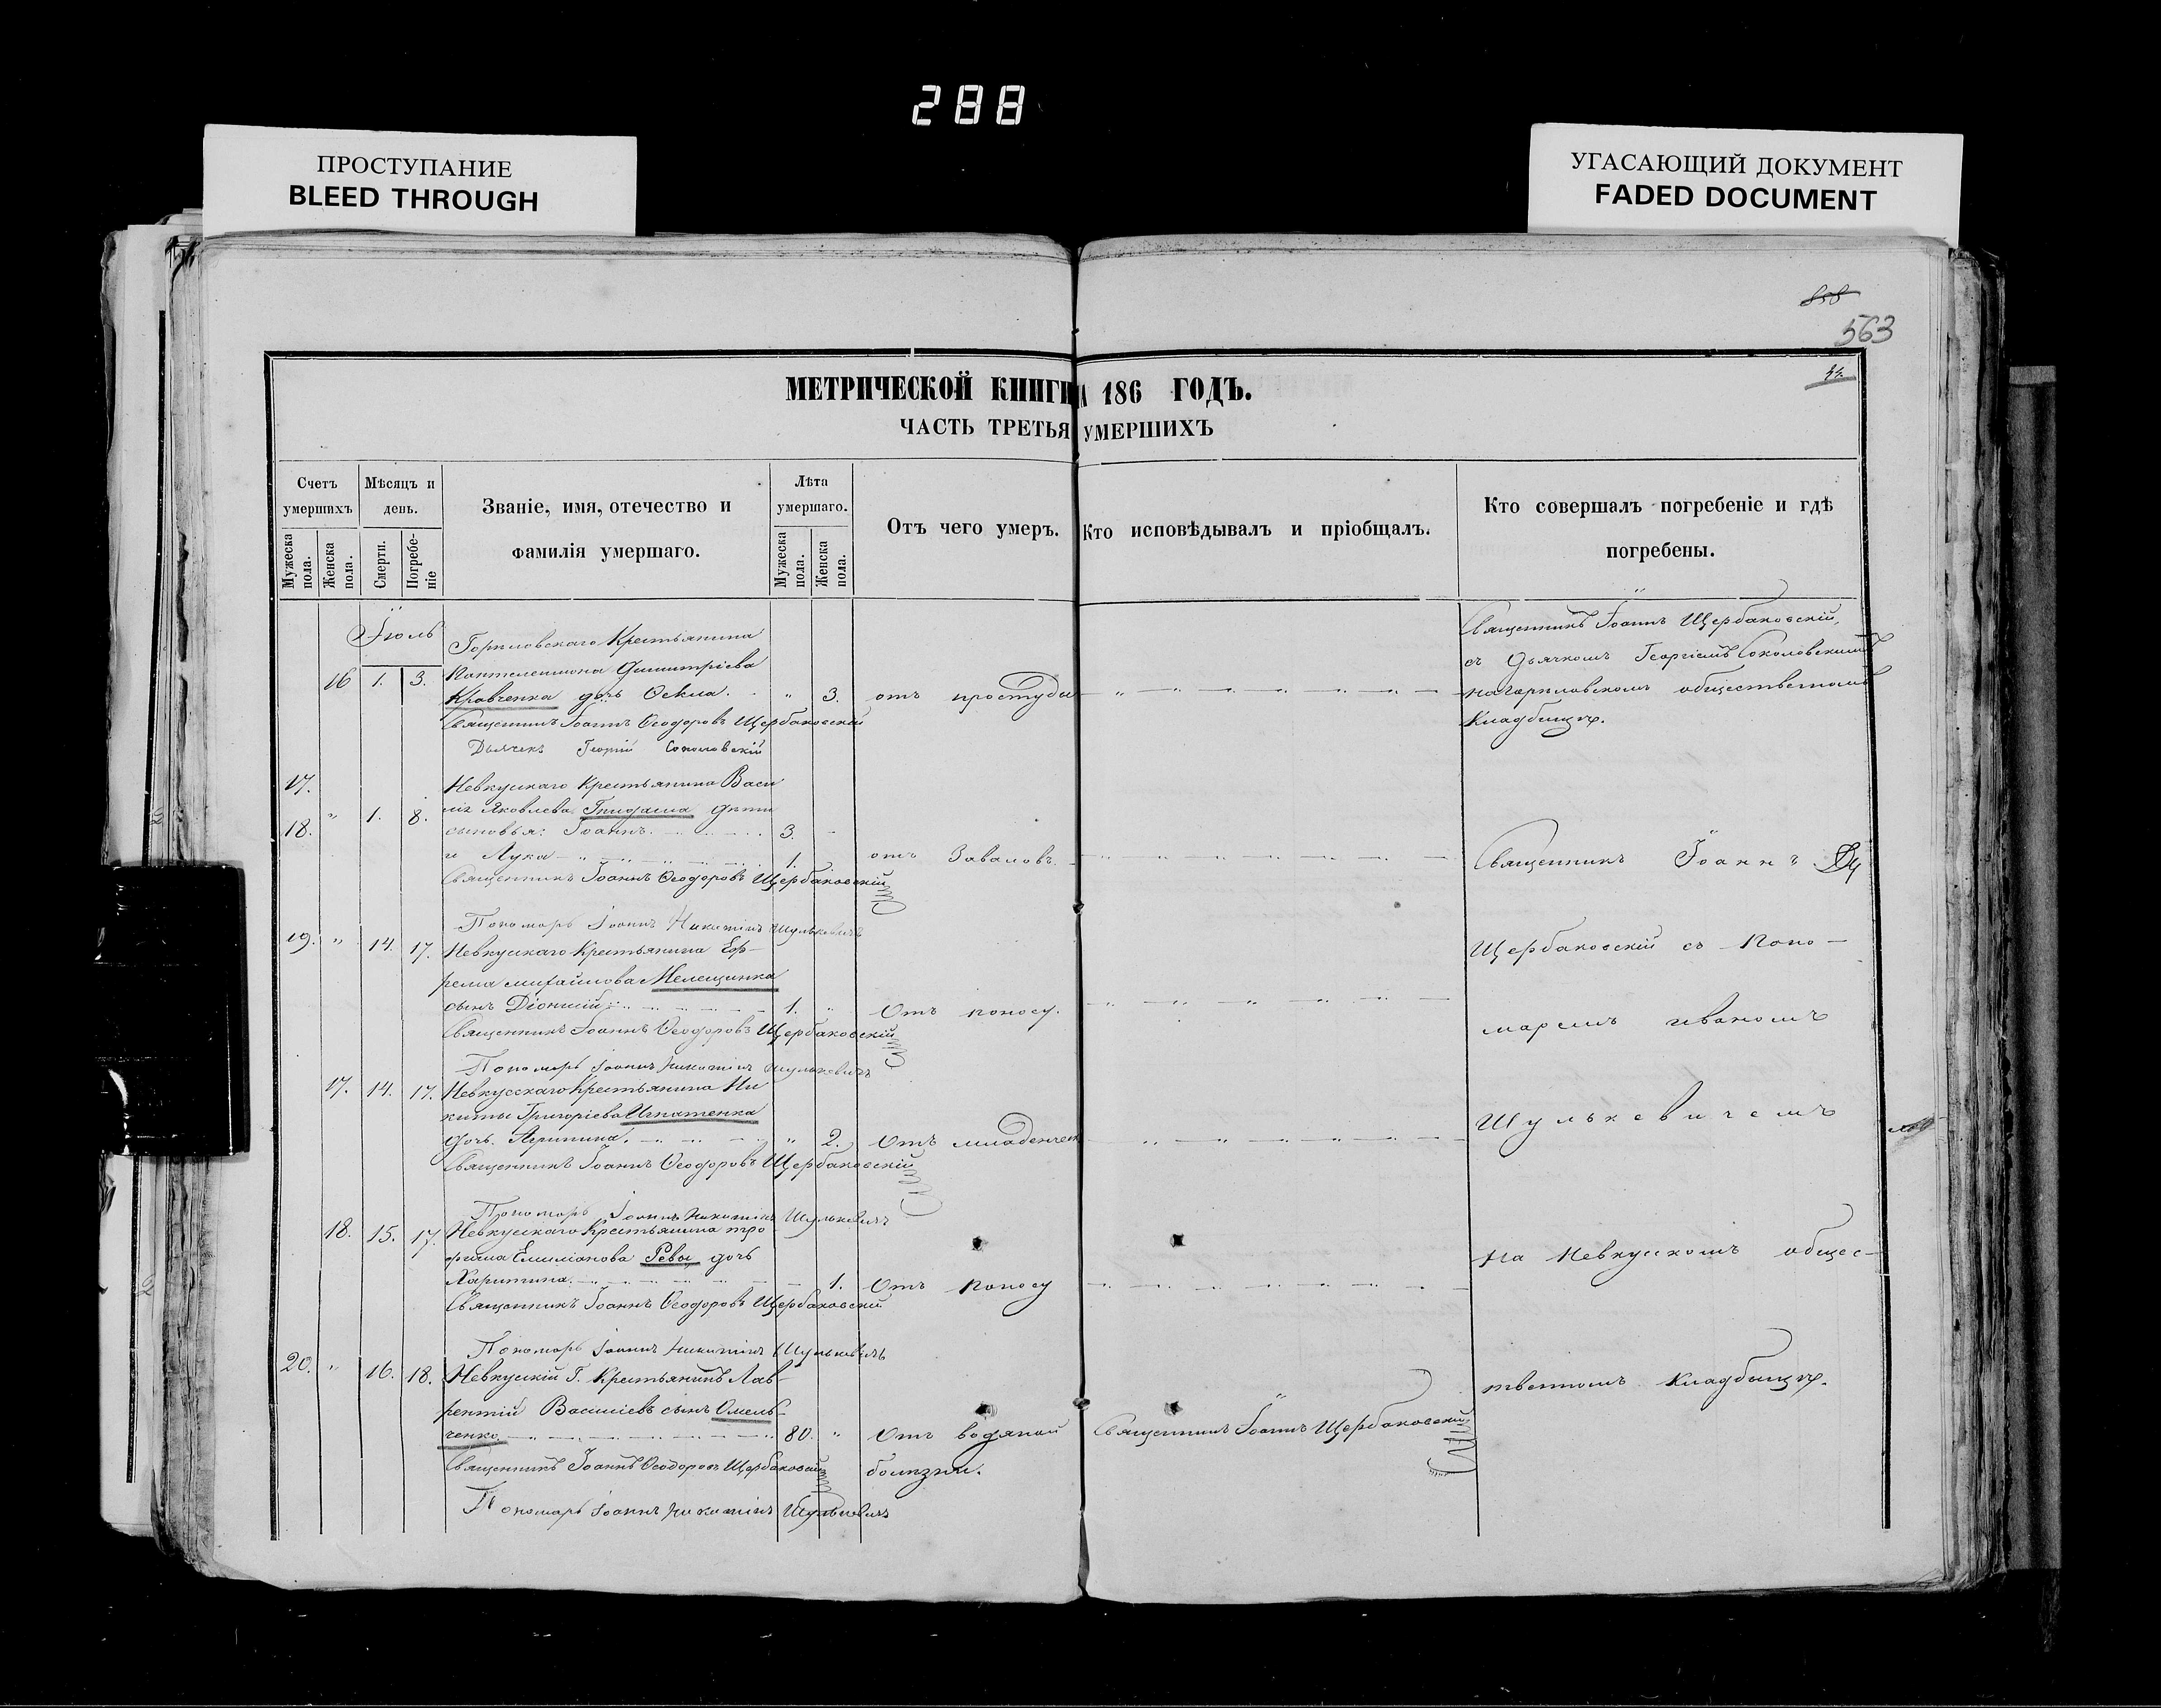 288
ПРОСТУПАНИЕ
BLEED THROUGH
УГАСАЮЩИЙ ДОКУМЕНТ
FADED DOCUMENT
858
563
МЕТРИЧЕСКОЙ КНИГИ 186 ГОДЪ.
ЧАСТЬ ТРЕТЬЯ УМЕРШИХЪ
Счетъ умершихъ
Мужеска пола.
Женска пола.
Мѣсяцъ и день.
Смерти.
Погребе-ніе
Званіе, имя, отечество и
фамилія умершаго.
Лѣта умершаго.
Мужеска пола.
Женска пола.
Отъ чего умеръ.
Кто исповѣдывалъ и пріобщалъ.
Кто совершалъ погребеніе и гдѣ
погребены.
Іюль
Крестьянина
16 1. 3.
Димитріева
Кравченка дочь Ѳекла. " 3. отъ простуды
Священникъ Іоаннъ Ѳеодоровъ Щербаковскій
Дьячекъ Георгій Соколовскій
Священникъ Іоаннъ Щербаковскій,
съ Дьячкомъ Георгіемъ Соколовскимъ
общественномъ
Кладбищѣ.
17. Невкускаго Крестьянина Васи
лія Яковлева дѣти
18. " 1. 8. сыновья: Іоаннъ. 3.
и Лука 1. отъ Заваловъ
Священникъ Іоаннъ Ѳеодоровъ Щербаковскій
Пономарь Іоаннъ Никитинъ Шулькевичъ
19. " 14. 17. Невкускаго Крестьянина Еф-
рема Михайлова Мелещинка
сынъ Діонисій 1. " Отъ поносу.
Священникъ Іоаннъ Ѳеодоровъ Щербаковскій
Пономарь Іоаннъ Никитинъ Шулькевичъ
17. 14. 17. Невкусскаго Крестьянина Ни
киты Григоріева Игнатенка
дочь Агрипина. " 2. Отъ младенческ
Священникъ Іоаннъ Ѳеодоровъ Щербаковскій
Пономарь Іоаннъ Никитинъ Шулькевичъ
18. 15. 17. Невкускаго Крестьянина Тро
фима Емиліанова Ревы дочь
Харитина. 1. Отъ поносу
Священникъ Іоаннъ Ѳеодоровъ Щербаковскій
Пономарь Іоаннъ Никитинъ Шулькевичъ
20. " 16. 18. Невкускій Г. Крестьянинъ Лав-
рентій Василіевъ сынъ Омель-
ченко 80. " Отъ водяной
болѣзни.
Священникъ Іоаннъ Щербаковскій
Священникъ Іоаннъ Ѳеодоровъ Щербаковскій
Пономарь Іоаннъ Никитинъ Шулькевичъ
Священникъ Іоаннъ
Щербаковскій съ Поно-
маремъ Иваномъ
Шулькевичемъ
на Невкускомъ общес-
твенномъ Кладбищѣ.